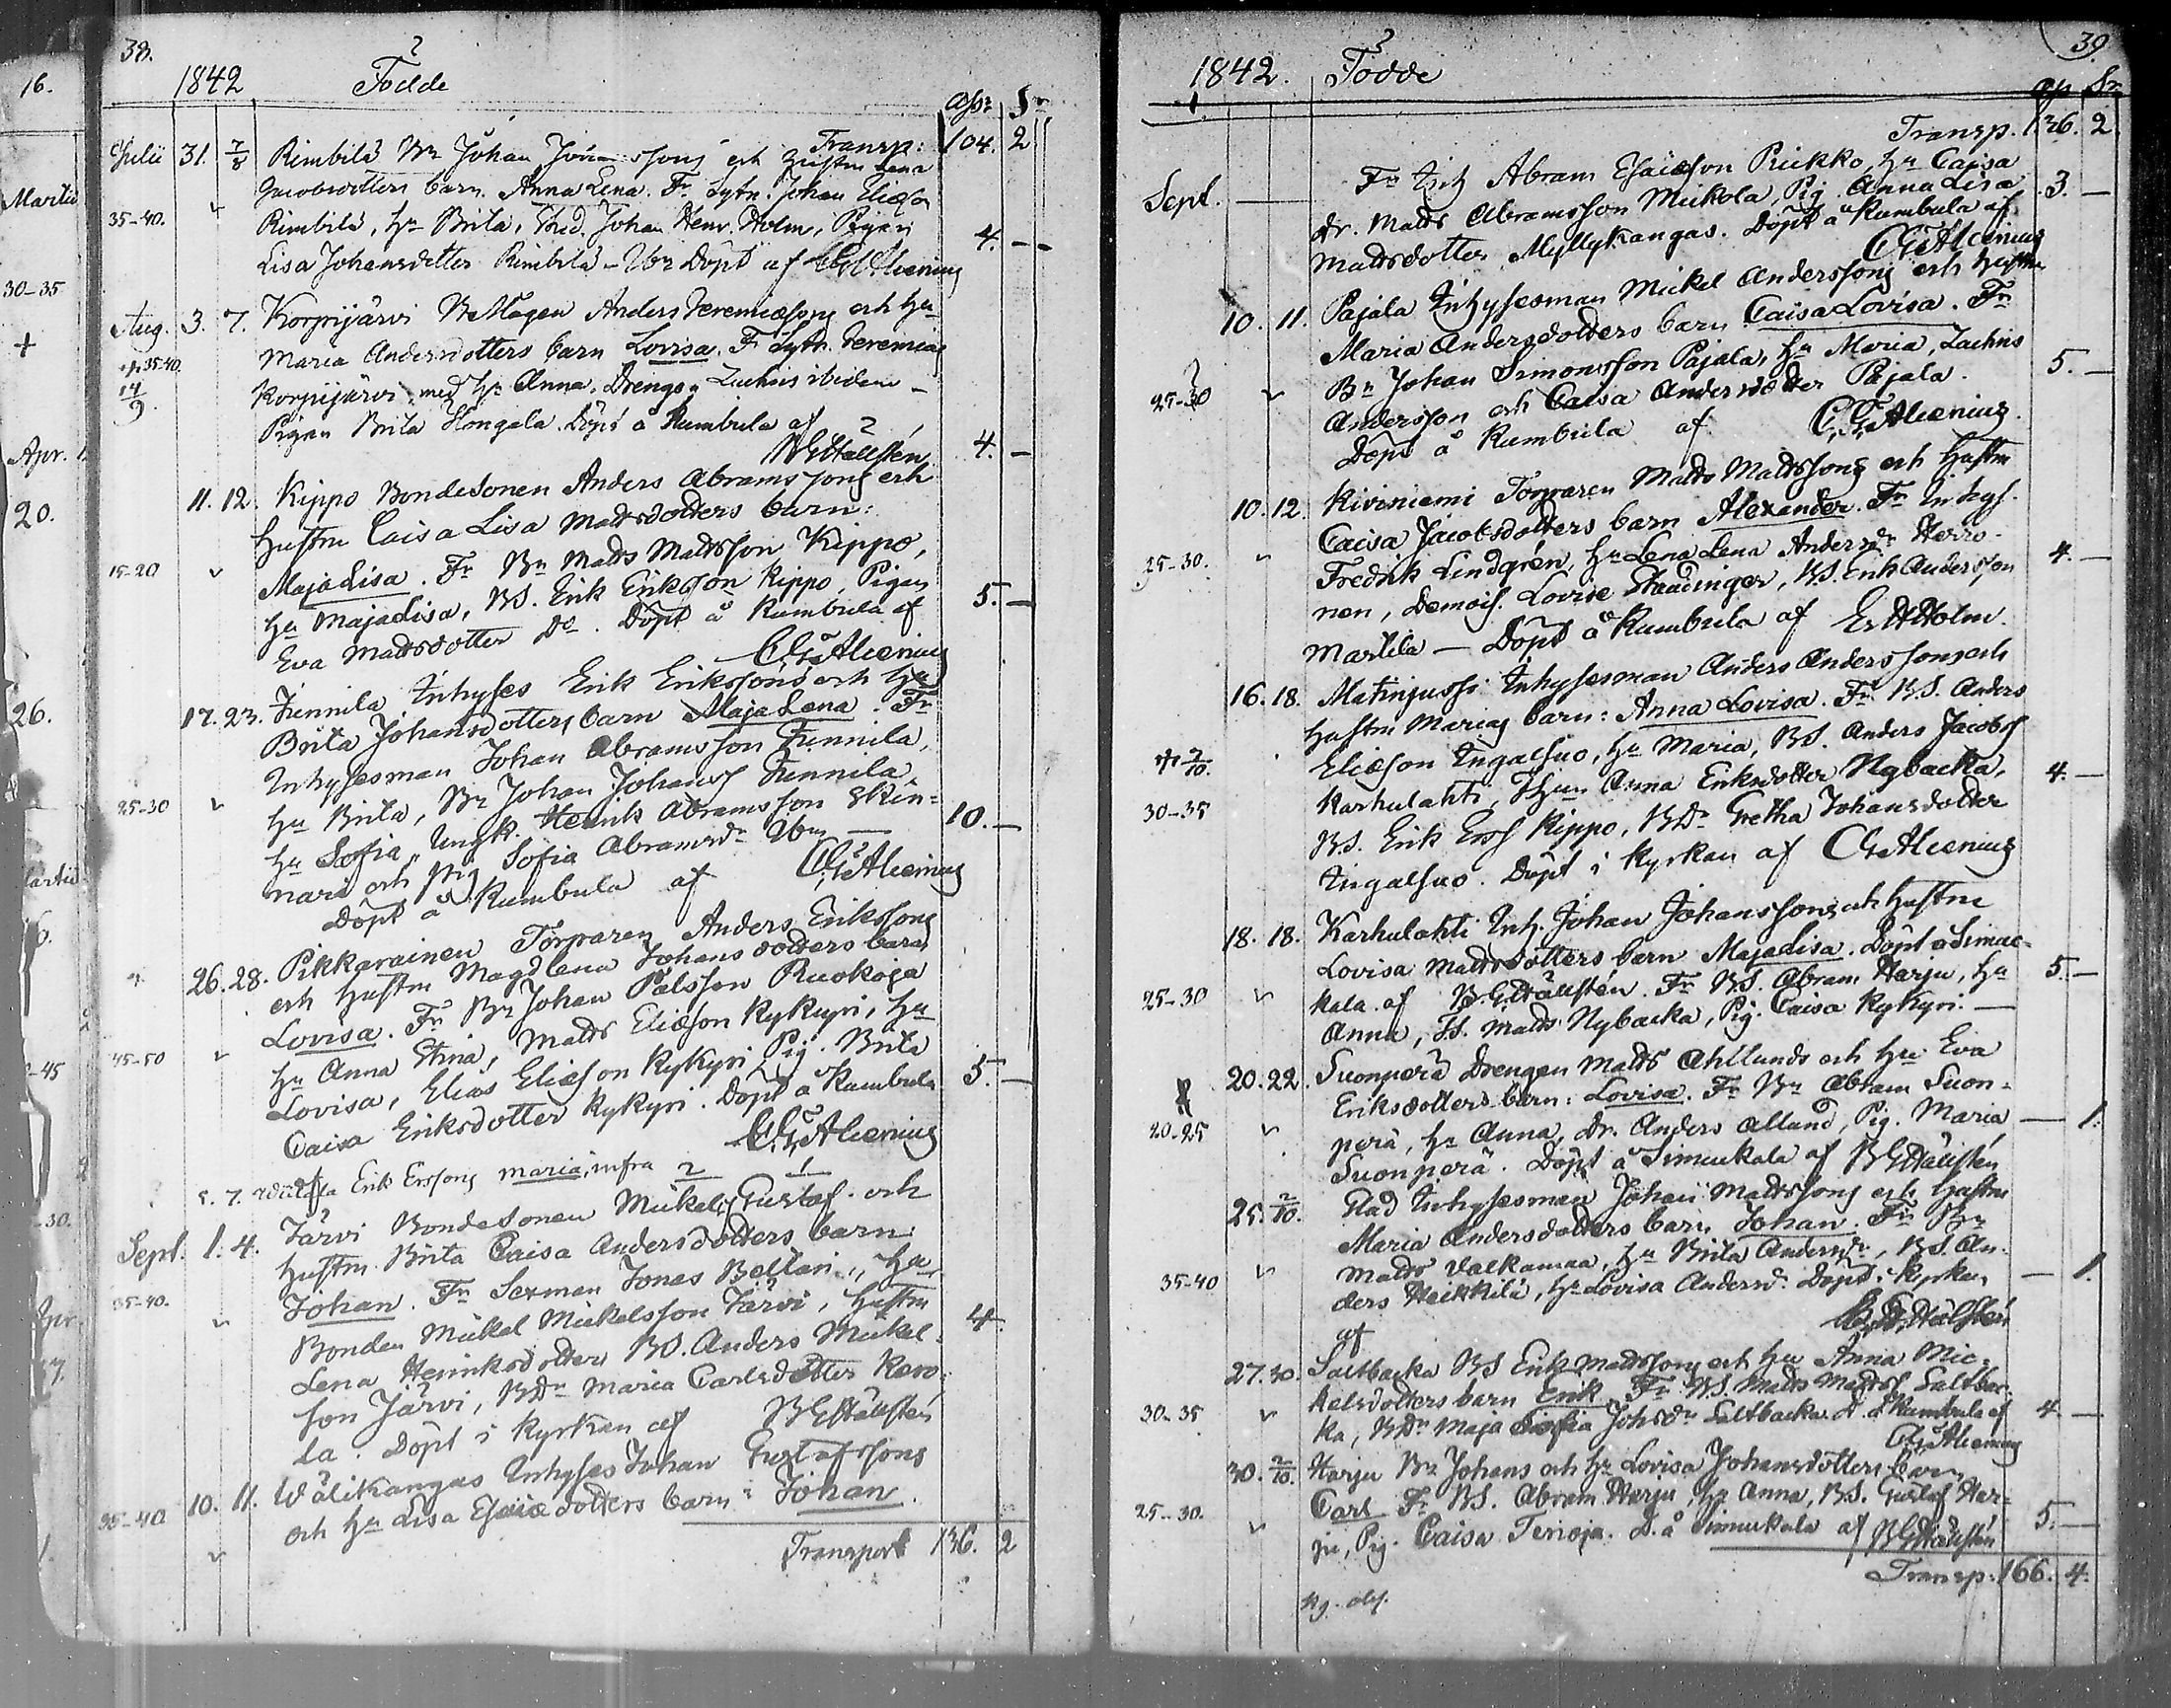 38.
1842 Födde
Ass: Sr
Transp: 104. 2
Julii 31. 7/8 Rimbilä Bn Johan Johanssons och hustru Lena
Jacobsdotters barn Anna Lena. Fr Sytn. Johan Eliæson
35-40. Rimbilä, hu Brita, Stud. Johan Henr. Holm, Pigan
Lisa Johansdotter Rimbilä - Döpt af CGAlcenius 4. -
Aug. 3. 7. Korpijärvi Mågen Anders Jeremiæsons och hu
35-40 Maria Andersdotters barn Lovisa. Fr Sytn. Jeremias
14/9. Korpijärvi med hu Anna, Drengen Zachris ibidem -
Pigan Brita Hongala. Döpt å Rumbula af
BGHällstén 4. -
11. 12. Kippo Bondesonen Anders Abramssons och
hustru Caisa Lisa Mattsdotters barn:
15-20 Maja Lisa. Fr Bn Matts Mattsson Kippo,
hu Maja Lisa, BS. Erik Eriksson Kippo, Pigan 5. -
Eva Mattsdotter Do. Döpt å Rumbula af
CGAlcenius
17. 23. Funnila Inhyses Erik Erikssons och hu
Brita Johansdotters barn Maja Lena. Fr
Inhysesman Johan Abramsson Funnila,
25-30 hu Brita, Bn Johan Johans Funnila,
hu Sofia, Ungk. Henrik Abramsson Skin= 10. -
nari och pig Sofia Abramsdr
Döpt å Rumbula af CGAlcenius
26. 28. Pikkarainen Torparen Anders Erikssons
och hustru Magdlena Johansdotters barn
Lovisa. Fr Bn Johan Pålsson Ruokoja
hu Anna Stina, Matts Eliæson Kykyri, hu
45-50 Lovisa, Elias Eliæson Kykyri, Pig. Brita
Caisa Eriksdotter Kykyri. Döpt å Rumbula 5. -
CGAlcenius
5. 7. Erik Erssons Maria, infra
Sept. 1. 4. Järvi Bondesonen Mickel Gustaf. och
hustru Brita Caisa Andersdotters barn
35-40. Johan. Fr Sexman Jonas Beltari, hu
Bonden Mickel Mickelsson Järvi, hustru
Lena Henriksdotter BS. Anders Mickel= 4.
son Järvi, BDr Maria Carlsdotter Kero
la. Döpt i Kyrkan af BGHällstén
35-40 10. 11. Wälikangas Inhyses Johan Gustafssons
och hu Lisa Esaiædotters barn: Johan.
Transport 136. 2
39.
1842. Födde
Sr
Transp. 136. 2
Sept. Fr Inh Abram Esaiæson Prikko, hu Caisa
dr. Matts Abramsson Mickola, Pig Anna Lisa 3. -
Mattsdotter Myllykangas. Döpt å Rumbula af
CGAlcenius
10. 11. Pajala Inhysesman Mickel Anderssons och hustru
Maria Andersdotters barn Caisa Lovisa. Fr
25-30 Bn Johan Simonsson Pajala, hu Maria, Zachris 5. -
Andersson och Caisa Andersdotter Pajala.
Döpt å Rumbula af CGAlcenius.
10. 12. Kiviniemi Torparen Matts Mattssons och hustru
Caisa Jacobsdotters barn Alexander. Fr Inhys.
25-30. Fredrik Lindqrén, hu Lena Lena Andersdr Herro- 4. -
nen, Demois. Lovise Staudinger, BS. Erik Andersson
Martila - Döpt å Rumbula af ErHHolm.
16. 18. Matinjussi Inhysesman Anders Anderssons och
hustru Marias barn: Anna Lovisa. Fr BS. Anders
7/10. Eliæson Ingalsuo, hu Maria, BS. Anders Jacobs
30-35 Karhulahti, Anna Eriksdotter Nybacka, 4. -
BS. Erik Erss Kippo, BDr Gretha Johansdotter
Ingalsuo. Döpt i Kyrkan af CGAlcenius
18. 18. Karhulahti Inh. Johan Johanssons och hustru
Lovisa Mattsdotters barn Maja Lisa. Döpt å Simu-
25-30 kala af BGHällstén. Fr BS. Abram Harju, hu 5. -
Anna, Matts Nybacka, Pig. Caisa Kykyri. -
20. 22. Suonperä Drengen Matts Ahllunds och hu Eva
Eriksdotters barn: Lovisa. Fr Bn Abram Suon-
20-25 perä, hu Anna, Dr. Anders Allund, Pig. Maria - 1.
Suonperä. Döpt å Simukala af BGHällstén
25. 2/10. Stad Inhysesman Johan Mattssons och hustru
Maria Andersdotters barn Johan. Fr Bn
35-40 Matts Valkamaa, hu Brita Andersdr, BS. An-
ders Heikkilä, hu Lovisa Andersdr. Döpt i Kyrkan - 1.
af BGHällstén
27. 30. Saltbacka BS Erik Mattssons och hu Anna Mic-
kelsdotters barn Erik. Fr BS. Matts Matts Saltbac-
30-35 ka, BDr Maja Sofia Johsdr Saltbacka. D. å Rumbula af 4. -
CGAlcenius
30. 2/10. Harju Bn Johans och hu Lovisa Johansdotters barn
25-30. Carl Fr BS. Abram Harju, hu Anna, BS. Gustaf Har-
ju, Pig. Caisa Terioja. D. å Simukala af BGHällstén 5. -
Transp: 166. 4.